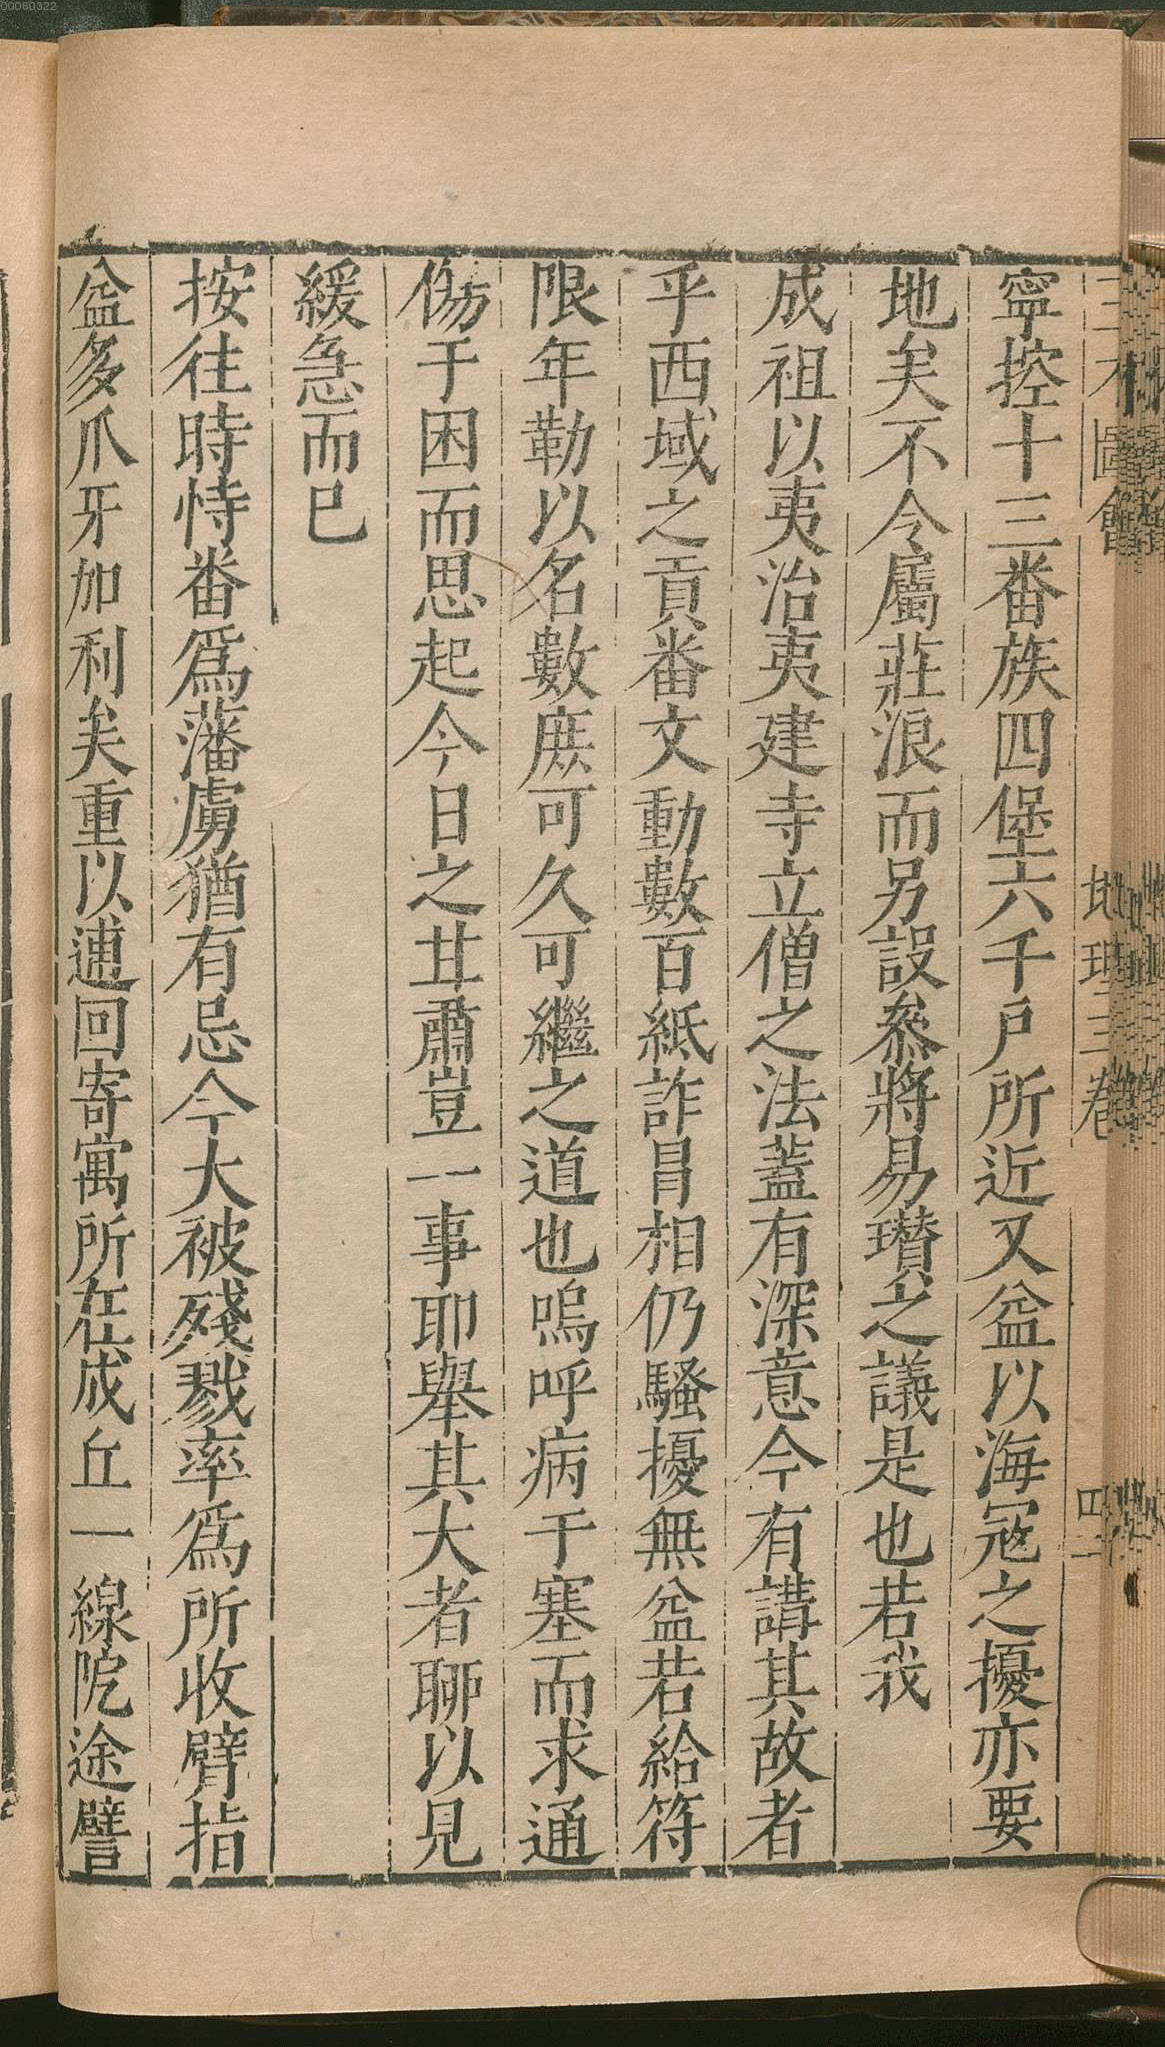 寧控十三番族四堡六千戶所近又益以海冦之擾亦要
地矣不令屬莊浪而另設叅將易瓚之議是也若我
成祖以夷治夷建寺立僧之法蓋有深意今有講其故者
乎西域之貢番文動數百紙詐冒相仍騷擾無益若給符
限年勒以名數庶可久可繼之道也嗚呼病于塞而求通
傷于困而思起今日之甘肅豈一事耶舉其大者聊以見
緩急而已
按往時恃番爲藩虜猶有忌今大被殘戮率爲所收臂指
益多爪牙加利矣重以逋回寄寓所在成丘一線阨途譬
三才圖會
地理三卷
四二
00060322